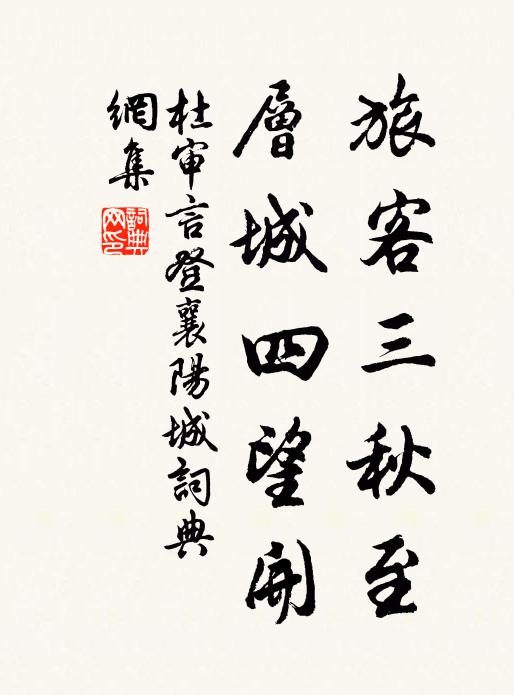 旅客三秋至
層城四望開
杜审言登襄陽城詞典
網集
詞典
网印